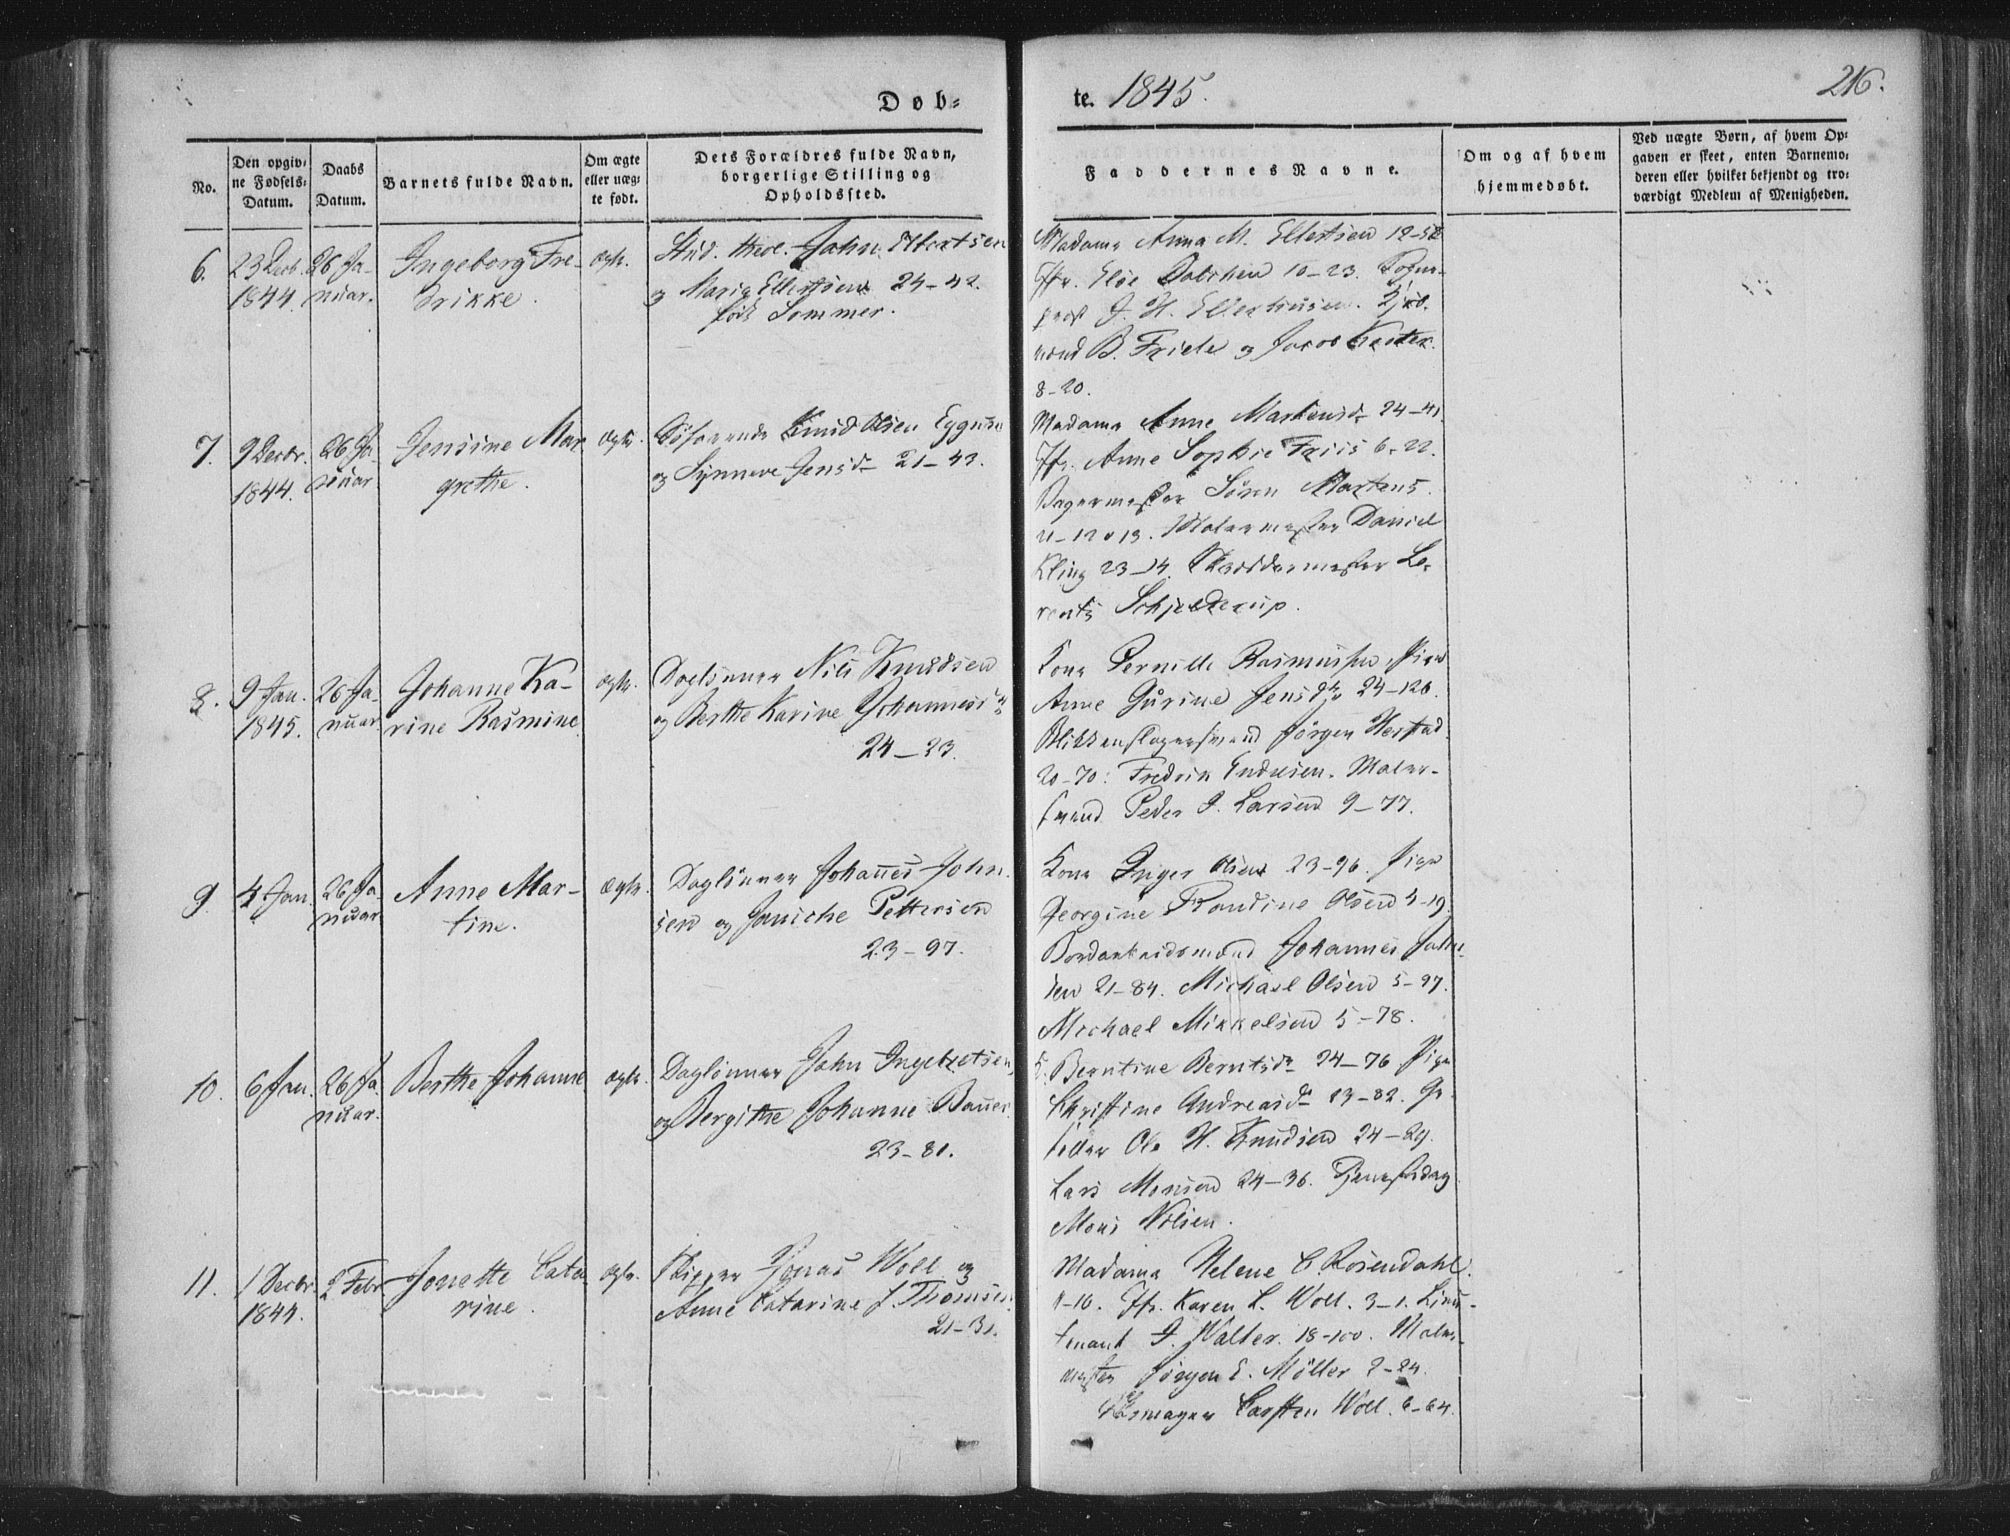 Døb=
te. 1845.
216.
No.
Den opgiv=
ne Fødsels=
Datum.
Daabs
Datum.
Barnets fulde Navn.
Om ægte
eller uæg=
te født.
Dets Forældres fulde Navn,
borgerlige Stilling og
Opholdssted.
Faddernes Navne.
Om og af hvem
hjemmedøbt.
Ved uægte Børn, af hvem Op=
gaven er skeet, enten Barnemo=
deren eller hvilket bekjendt og tro=
værdigt Medlem af Menigheden.
6.
23 Decb.
1844.
26 Ja-
nuar.
Ingeborg Fre-
drikke.
ægte.
Stud. theol. John Ellertsen
og Maria Ellertsen 24-42.
født Sommer.
Madame Anna M. Ellertsen
Jfr. Else 10-23.
J. H.
B. Friele og Jacob
8-20.
7.
9 Decbr.
1844.
26 Ja-
nuar
Jensine Mar
grethe.
ægte.
Søfarende Knud Olsen
og Synneve Jensd. 21-43.
Madame Anne 24-41
Jfr. Anne Sophie Friis 6-22.
Bagermester Søren Martens.
Malermester Daniel
Kling 23-14. Skræddermester Le-
rentz Schjelderup.
8.
9 Jan.
1845.
26 Ja-
nuar
Johanne Ka-
rine Rasmine
ægte.
Daglønner Nils Knudsen
og Berthe Karine Johannesd.
24-23.
Kone Pernille Rasmussen, Pige
Anne Gurine Jensdtr 24-126.
Blikkenslagersvend Jørgen
20-70. Fredrik Maler-
svend Peder J. Larsen 9-77.
9.
4 Jan.
26 Ja
nuar
Anne Mar-
tine.
ægte.
Dagløner Johannes John
sen og Janiche Pettersen
23-97.
Kone Inger Olsen 23-96. Pige
Georgine Randine Olsen 5-19.
Bordarbeidsmand Johannes
sen 21-84. Michael Olsen 5-97.
Michael Mikkelsen 5-78.
10.
6 Jan.
26 Ja
nuar.
Berthe Johanne
ægte.
Daglønner John Ingebretsen
og Bergithe Johanne
23-80.
Berntine Berntsdr 24-76 Pige
Christine Andreasdr 23-82.
Ole H. Knudsen 24-29.
Lars Monsen 24-36. Tjenestedreng
Mons Nilsen.
11.
1 Decbr.
1844.
2 Febr
Jonette Cata
rine.
ægte.
Skipper Jonas Woll og
Anne Catarine f. Thomsen
21-31.
Madame Helene C. Rosendahl.
Jfr. Karen L. Woll. 3-1. Lieut-
enant J. Walter. 18-100. Maler-
mester Jørgen E. Møller 2-24.
Carsten Woll. 6-64.